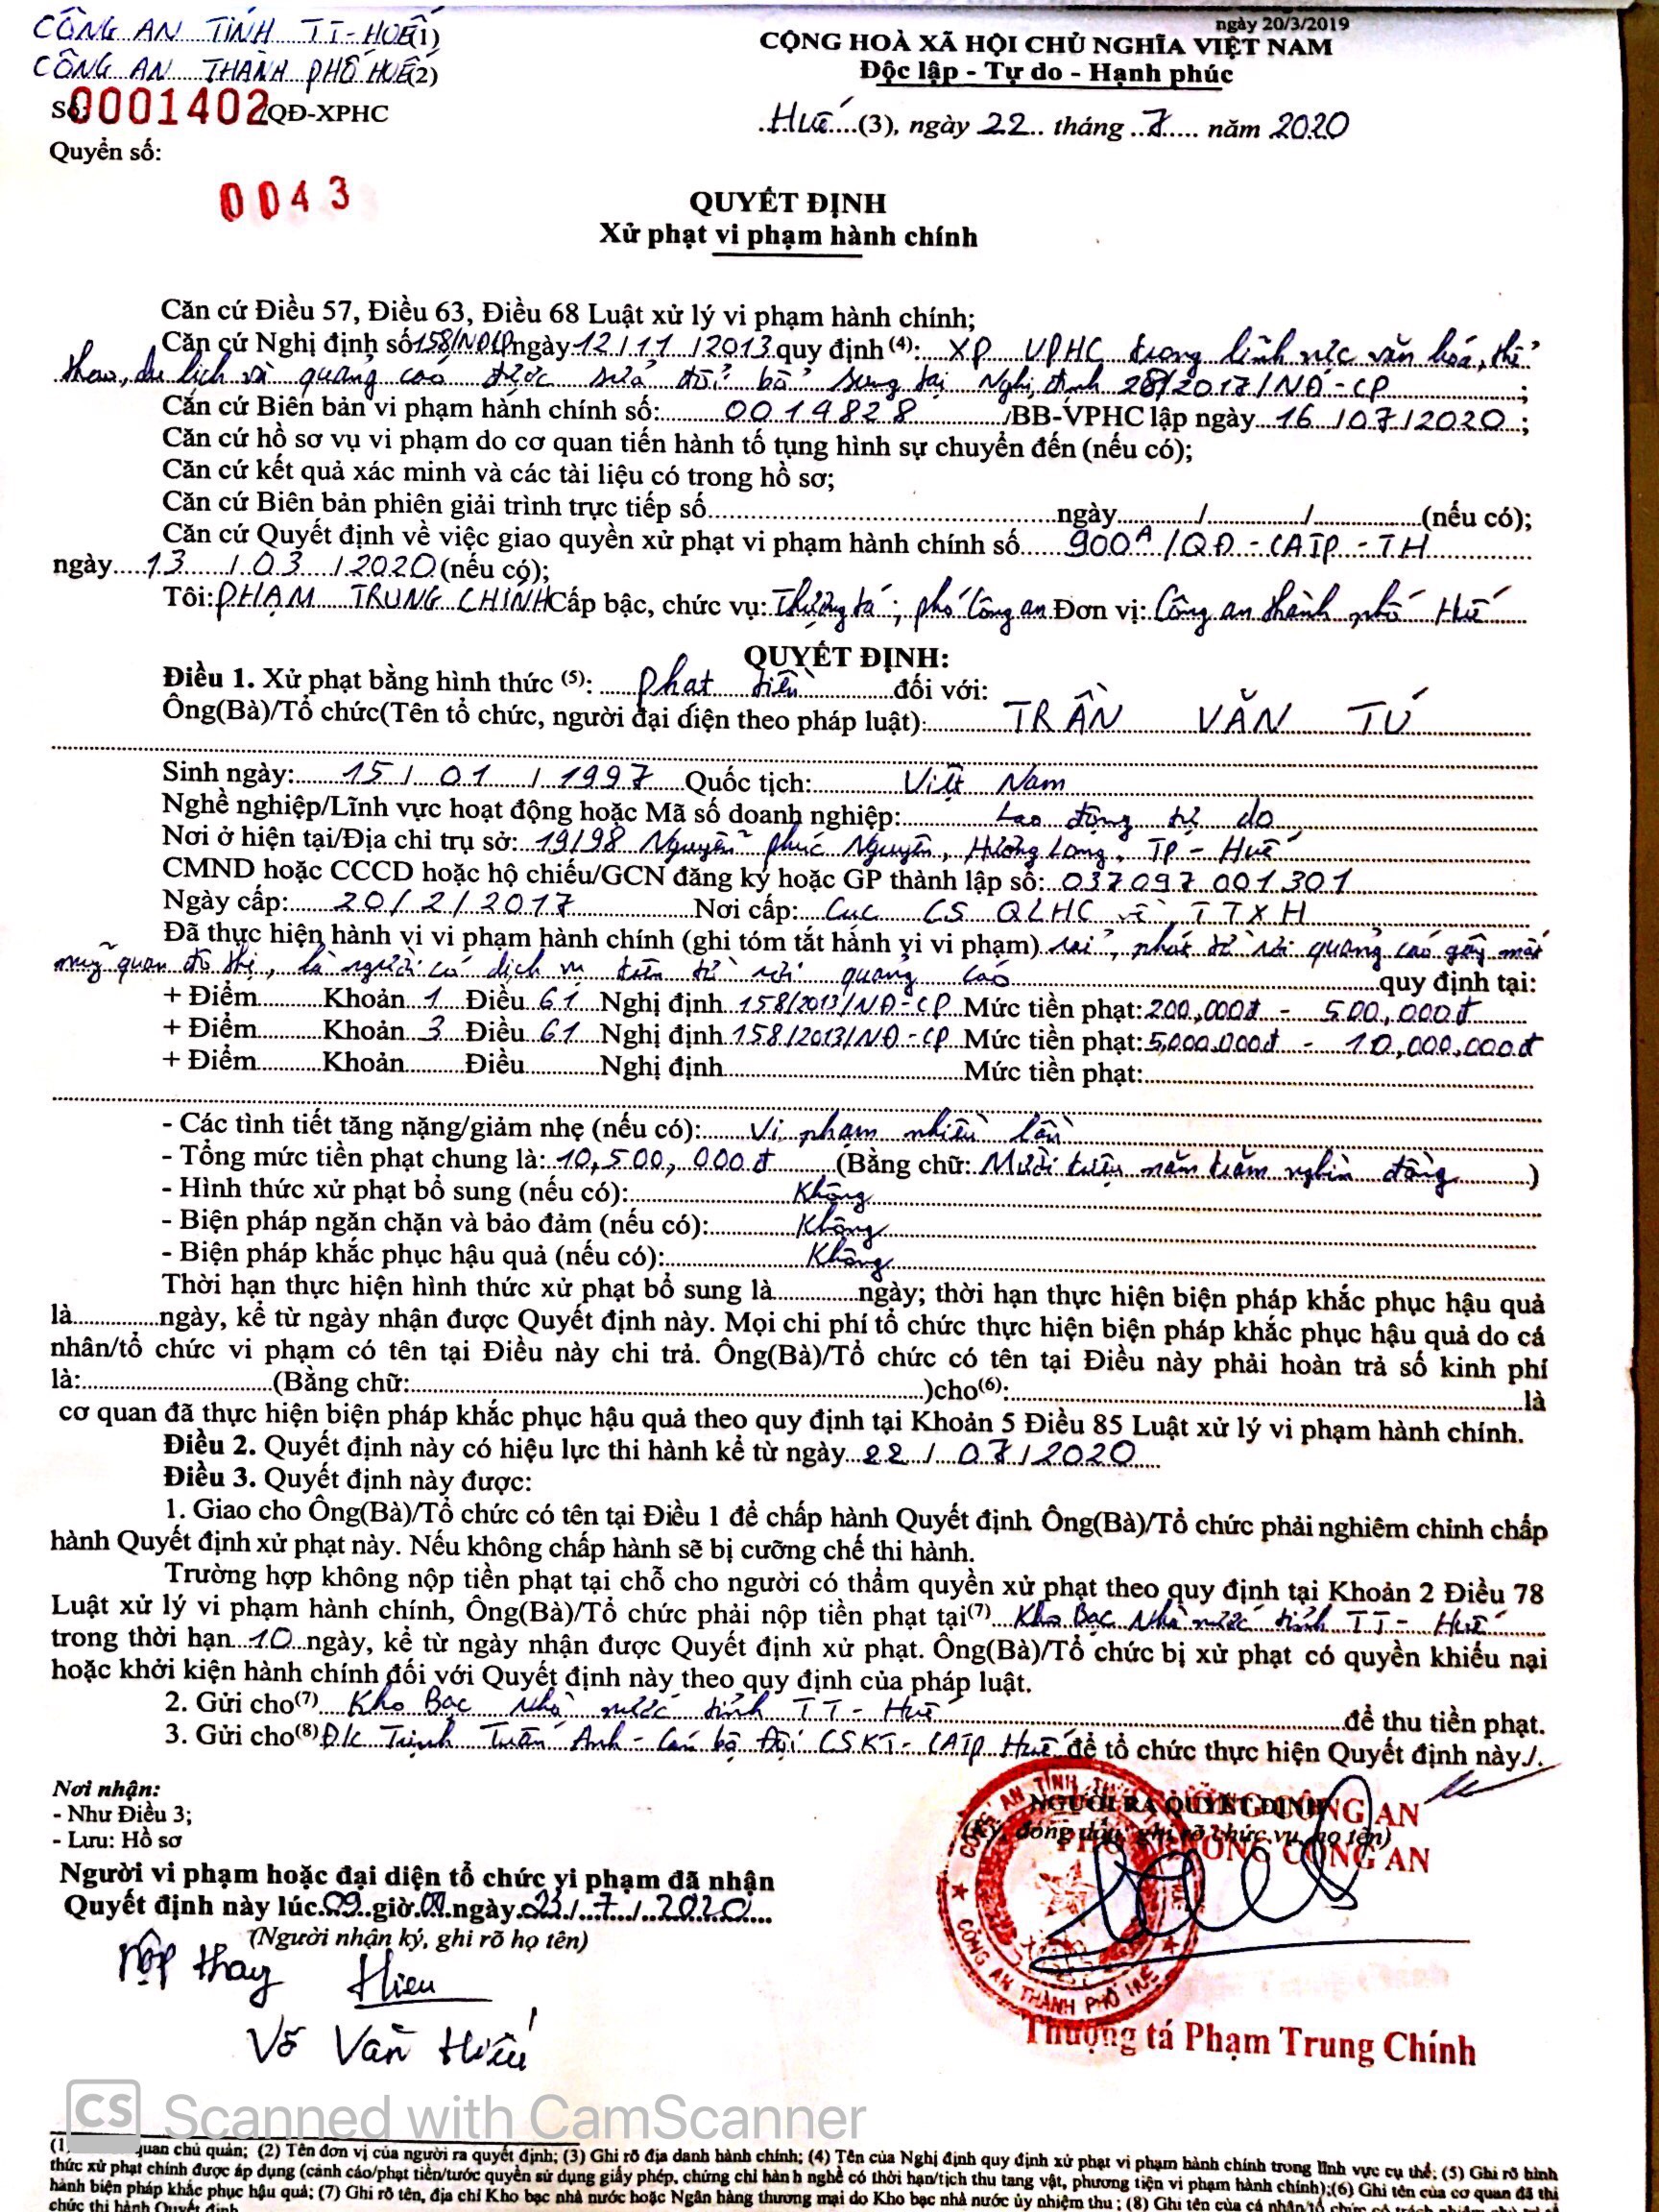 ngày 20/3/2019
CÔNG AN TỈNH TT-HUẾ(1)
CÔNG AN THÀNH PHỐ HUẾ(2)
CỘNG HOÀ XÃ HỘI CHỦ NGHĨA VIỆT NAM
Độc lập - Tự do - Hạnh phúc
Số: 0001402/QĐ-XPHC
Huế (3), ngày 22 tháng 7 năm 2020
Quyển số:
0043
QUYẾT ĐỊNH
Xử phạt vi phạm hành chính
Căn cứ Điều 57, Điều 63, Điều 68 Luật xử lý vi phạm hành chính;
Căn cứ Nghị định số 158/NĐCP ngày 12/11/2013 quy định (4): XP VPHC trong lĩnh vực văn hoá, thể
thao, du lịch và quảng cáo được sửa đổi bổ sung tại Nghị định 28/2017/NĐ-CP;
Căn cứ Biên bản vi phạm hành chính số: 0014828/BB-VPHC lập ngày 16/07/2020;
Căn cứ hồ sơ vụ vi phạm do cơ quan tiến hành tố tụng hình sự chuyển đến (nếu có);
Căn cứ kết quả xác minh và các tài liệu có trong hồ sơ;
Căn cứ Biên bản phiên giải trình trực tiếp số.....ngày...../...../.....(nếu có);
Căn cứ Quyết định về việc giao quyền xử phạt vi phạm hành chính số 900A/QĐ-CATP-TH
ngày 13/03/2020 (nếu có);
Tôi: PHẠM TRUNG CHÍNH Cấp bậc, chức vụ: Thượng tá; phó Công an Đơn vị: Công an thành phố Huế
QUYẾT ĐỊNH:
Điều 1. Xử phạt bằng hình thức (5): phạt tiền đối với:
Ông(Bà)/Tổ chức(Tên tổ chức, người đại diện theo pháp luật): TRẦN VĂN TÚ
Sinh ngày: 15/01/1997 Quốc tịch: Việt Nam
Nghề nghiệp/Lĩnh vực hoạt động hoặc Mã số doanh nghiệp: Lao động tự do
Nơi ở hiện tại/Địa chỉ trụ sở: 19/98 Nguyễn Phúc Nguyên, Hương Long, TP-Huế
CMND hoặc CCCD hoặc hộ chiếu/GCN đăng ký hoặc GP thành lập số: 037097001301
Ngày cấp: 20/2/2017 Nơi cấp: Cục CS QLHC về TTXH
Đã thực hiện hành vi vi phạm hành chính (ghi tóm tắt hành vi vi phạm) rải, phát tờ rơi quảng cáo gây mất
mỹ quan đô thị, là người có dịch vụ trên tờ rơi quảng cáo quy định tại:
+ Điểm..... Khoản 1 Điều 61 Nghị định 158/2013/NĐ-CP Mức tiền phạt: 200,000đ - 500,000đ
+ Điểm..... Khoản 3 Điều 61 Nghị định 158/2013/NĐ-CP Mức tiền phạt: 5,000,000đ - 10,000,000đ
+ Điểm.....Khoản.....Điều.....Nghị định.....Mức tiền phạt:.....
- Các tình tiết tăng nặng/giảm nhẹ (nếu có): Vi phạm nhiều lần
- Tổng mức tiền phạt chung là: 10,500,000đ (Bằng chữ: Mười triệu năm trăm nghìn đồng)
- Hình thức xử phạt bổ sung (nếu có): Không
- Biện pháp ngăn chặn và bảo đảm (nếu có): Không
- Biện pháp khắc phục hậu quả (nếu có): Không
Thời hạn thực hiện hình thức xử phạt bổ sung là.....ngày; thời hạn thực hiện biện pháp khắc phục hậu quả
là.....ngày, kể từ ngày nhận được Quyết định này. Mọi chi phí tổ chức thực hiện biện pháp khắc phục hậu quả do cá
nhân/tổ chức vi phạm có tên tại Điều này chi trả. Ông(Bà)/Tổ chức có tên tại Điều này phải hoàn trả số kinh phí
là:.....(Bằng chữ:.....)cho(6):.....là
cơ quan đã thực hiện biện pháp khắc phục hậu quả theo quy định tại Khoản 5 Điều 85 Luật xử lý vi phạm hành chính.
Điều 2. Quyết định này có hiệu lực thi hành kể từ ngày 22/07/2020
Điều 3. Quyết định này được:
1. Giao cho Ông(Bà)/Tổ chức có tên tại Điều 1 để chấp hành Quyết định Ông(Bà)/Tổ chức phải nghiêm chỉnh chấp
hành Quyết định xử phạt này. Nếu không chấp hành sẽ bị cưỡng chế thi hành.
Trường hợp không nộp tiền phạt tại chỗ cho người có thẩm quyền xử phạt theo quy định tại Khoản 2 Điều 78
Luật xử lý vi phạm hành chính, Ông(Bà)/Tổ chức phải nộp tiền phạt tại(7) Kho Bạc Nhà nước tỉnh TT-Huế
trong thời hạn 10 ngày, kể từ ngày nhận được Quyết định xử phạt. Ông(Bà)/Tổ chức bị xử phạt có quyền khiếu nại
hoặc khởi kiện hành chính đối với Quyết định này theo quy định của pháp luật.
2. Gửi cho(7) Kho Bạc Nhà nước tỉnh TT-Huế để thu tiền phạt.
3. Gửi cho(8) Đ/c Trịnh Tuấn Anh - Cán bộ Đội CSKT-CATP Huế để tổ chức thực hiện Quyết định này./.
Nơi nhận:
- Như Điều 3;
- Lưu: Hồ sơ
NGƯỜI RA QUYẾT ĐỊNH
(Ký, đóng dấu, ghi rõ chức vụ, họ tên)
PHÓ TRƯỞNG CÔNG AN
CÔNG AN THÀNH PHỐ HUẾ
Người vi phạm hoặc đại diện tổ chức vi phạm đã nhận
Quyết định này lúc 09 giờ 00 ngày 23/7/2020
(Người nhận ký, ghi rõ họ tên)
Nộp thay Hieu
Võ Văn Hiếu
Thượng tá Phạm Trung Chính
CS Scanned with CamScanner
(1) quan chủ quản; (2) Tên đơn vị của người ra quyết định; (3) Ghi rõ địa danh hành chính; (4) Tên của Nghị định quy định xử phạt vi phạm hành chính trong lĩnh vực cụ thể; (5) Ghi rõ hình
thức xử phạt chính được áp dụng (cảnh cáo/phạt tiền/tước quyền sử dụng giấy phép, chứng chỉ hành nghề có thời hạn/tịch thu tang vật, phương tiện vi phạm hành chính);(6) Ghi tên của cơ quan đã thi
hành biện pháp khắc phục hậu quả; (7) Ghi rõ tên, địa chỉ Kho bạc nhà nước hoặc Ngân hàng thương mại do Kho bạc nhà nước ủy nhiệm thu; (8) Ghi tên của cá nhân/tổ chức
chức thi hành Quyết định